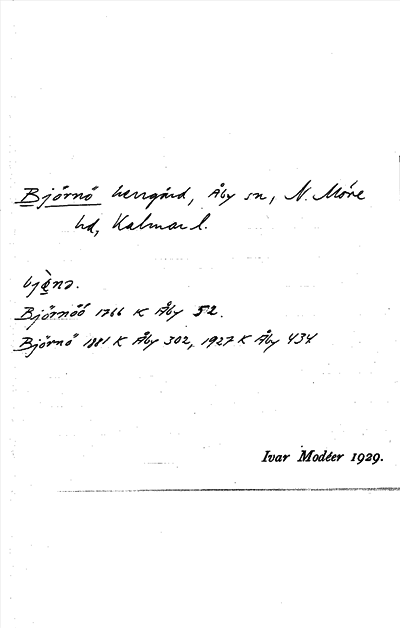 Björnö herrgård, Åby sn, N. Möre
hd, Kalmar l.
Björnöö 1766 K Åby 52.
Björnö 1881 K Åby 302, 1927 K Åby 434
Ivar Modéer 1929.